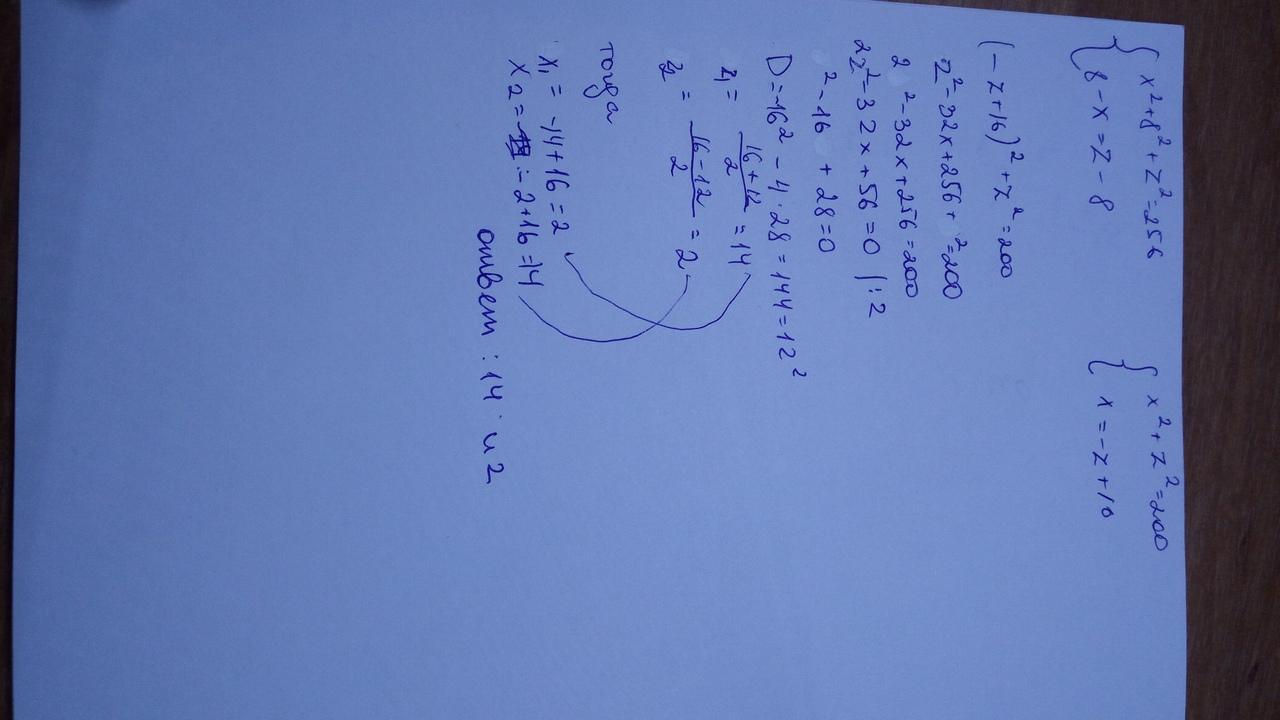 { x² + 8² + z² = 256
8 - x = z - 8
{ x² + z² = 200
x = -z + 16
(-z + 16)² + z² = 200
z² - 32x + 256 + ² = 200
2 ² - 32x + 256 = 200
2z² - 32x + 56 = 0 | : 2
² - 16 + 28 = 0
D = -16² - 4 · 28 = 144 = 12²
z₁ = (16 + 12)/2 = 14
z₂ = (16 - 12)/2 = 2
тогда
x₁ = -14 + 16 = 2
x₂ = -2 + 16 = 14
ответ : 14 и 2